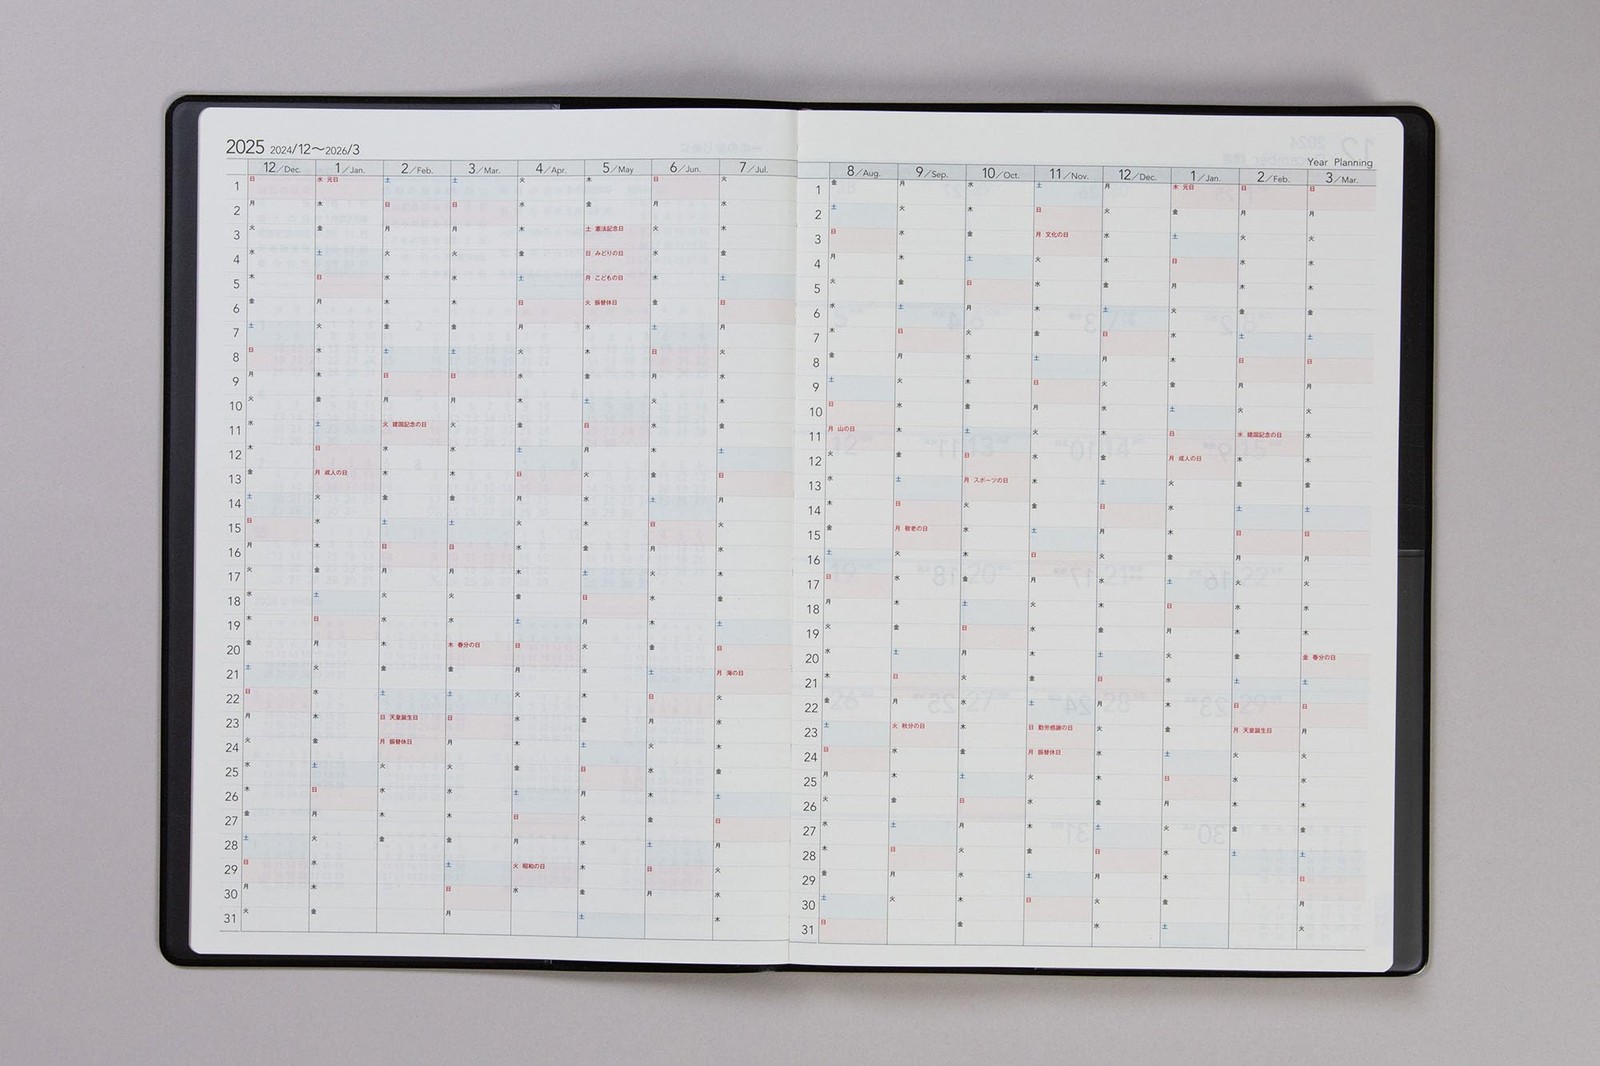 2025 2024/12〜2026/3
12/Dec. 1/Jan. 2/Feb. 3/Mar. 4/Apr. 5/May 6/Jun. 7/Jul.
1 日 水 元日 土 土 火 木 日 火
2 月 木 日 日 水 金 月 水
3 火 金 月 月 木 土 憲法記念日 火 木
4 水 土 火 火 金 日 みどりの日 水 金
5 木 日 水 水 土 月 こどもの日 木 土
6 金 月 木 木 日 火 振替休日 金 日
7 土 火 金 金 月 水 土 月
8 日 水 土 土 火 木 日 火
9 月 木 日 日 水 金 月 水
10 火 金 月 月 木 土 火 木
11 水 土 火 建国記念の日 火 金 日 水 金
12 木 日 水 水 土 月 木 土
13 金 月 成人の日 木 木 日 火 金 日
14 土 火 金 金 月 水 土 月
15 日 水 土 土 火 木 日 火
16 月 木 日 日 水 金 月 水
17 火 金 月 月 木 土 火 木
18 水 土 火 火 金 日 水 金
19 木 日 水 水 土 月 木 土
20 金 月 木 木 春分の日 日 火 金 日
21 土 火 金 金 月 水 土 月 海の日
22 日 水 土 土 火 木 日 火
23 月 木 日 天皇誕生日 日 水 金 月 水
24 火 金 月 振替休日 月 木 土 火 木
25 水 土 火 火 金 日 水 金
26 木 日 水 水 土 月 木 土
27 金 月 木 木 日 火 金 日
28 土 火 金 金 月 水 土 月
29 日 水 土 火 昭和の日 木 日 火
30 月 木 日 水 金 月 水
31 火 金 月 土 木
Year Planning
8/Aug. 9/Sep. 10/Oct. 11/Nov. 12/Dec. 1/Jan. 2/Feb. 3/Mar.
1 金 月 水 土 月 木 元日 日 日
2 土 火 木 日 火 金 月 月
3 日 水 金 月 文化の日 水 土 火 火
4 月 木 土 火 木 日 水 水
5 火 金 日 水 金 月 木 木
6 水 土 月 木 土 火 金 金
7 木 日 火 金 日 水 土 土
8 金 月 水 土 月 木 日 日
9 土 火 木 日 火 金 月 月
10 日 水 金 月 水 土 火 火
11 月 山の日 木 土 火 木 日 水 建国記念の日 水
12 火 金 日 水 金 月 成人の日 木 木
13 水 土 月 スポーツの日 木 土 火 金 金
14 木 日 火 金 日 水 土 土
15 金 月 敬老の日 水 土 月 木 日 日
16 土 火 木 日 火 金 月 月
17 日 水 金 月 水 土 火 火
18 月 木 土 火 木 日 水 水
19 火 金 日 水 金 月 木 木
20 水 土 月 木 土 火 金 金 春分の日
21 木 日 火 金 日 水 土 土
22 金 月 水 土 月 木 日 日
23 土 火 秋分の日 木 日 勤労感謝の日 火 金 月 天皇誕生日 月
24 日 水 金 月 振替休日 水 土 火 火
25 月 木 土 火 木 日 水 水
26 火 金 日 水 金 月 木 木
27 水 土 月 木 土 火 金 金
28 木 日 火 金 日 水 土 土
29 金 月 水 土 月 木 日
30 土 火 木 日 火 金 月
31 日 金 水 土 火